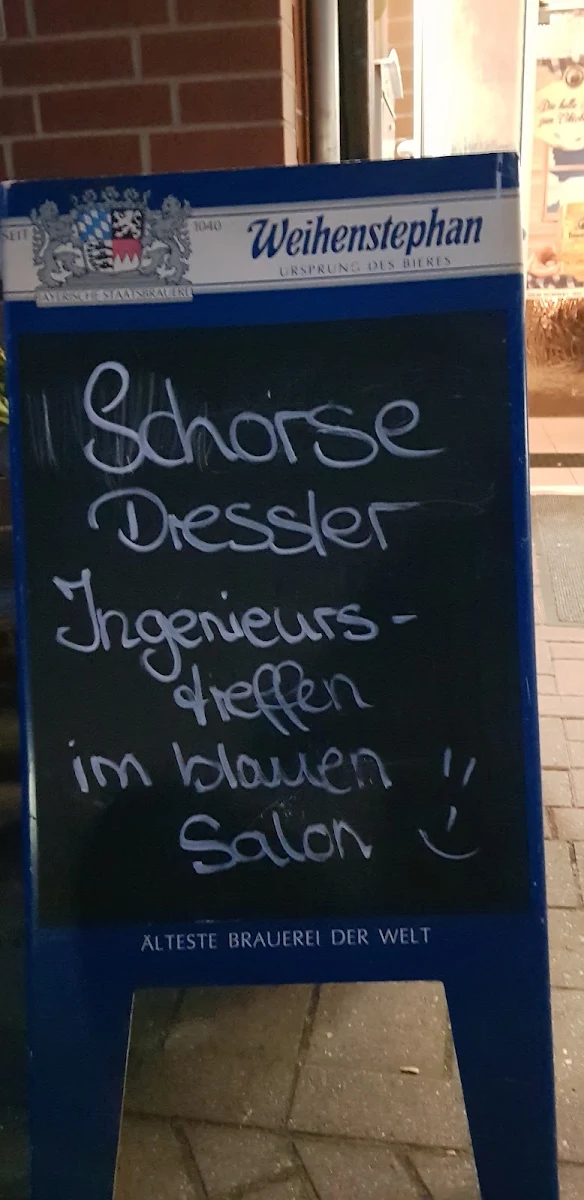 SEIT 1040
Weihenstephan
URSPRUNG DES BIERES
BAYERISCHE STAATSBRAUEREI
Schorse
Dressler
Ingenieurs-
treffen
im blauen
Salon
ÄLTESTE BRAUEREI DER WELT